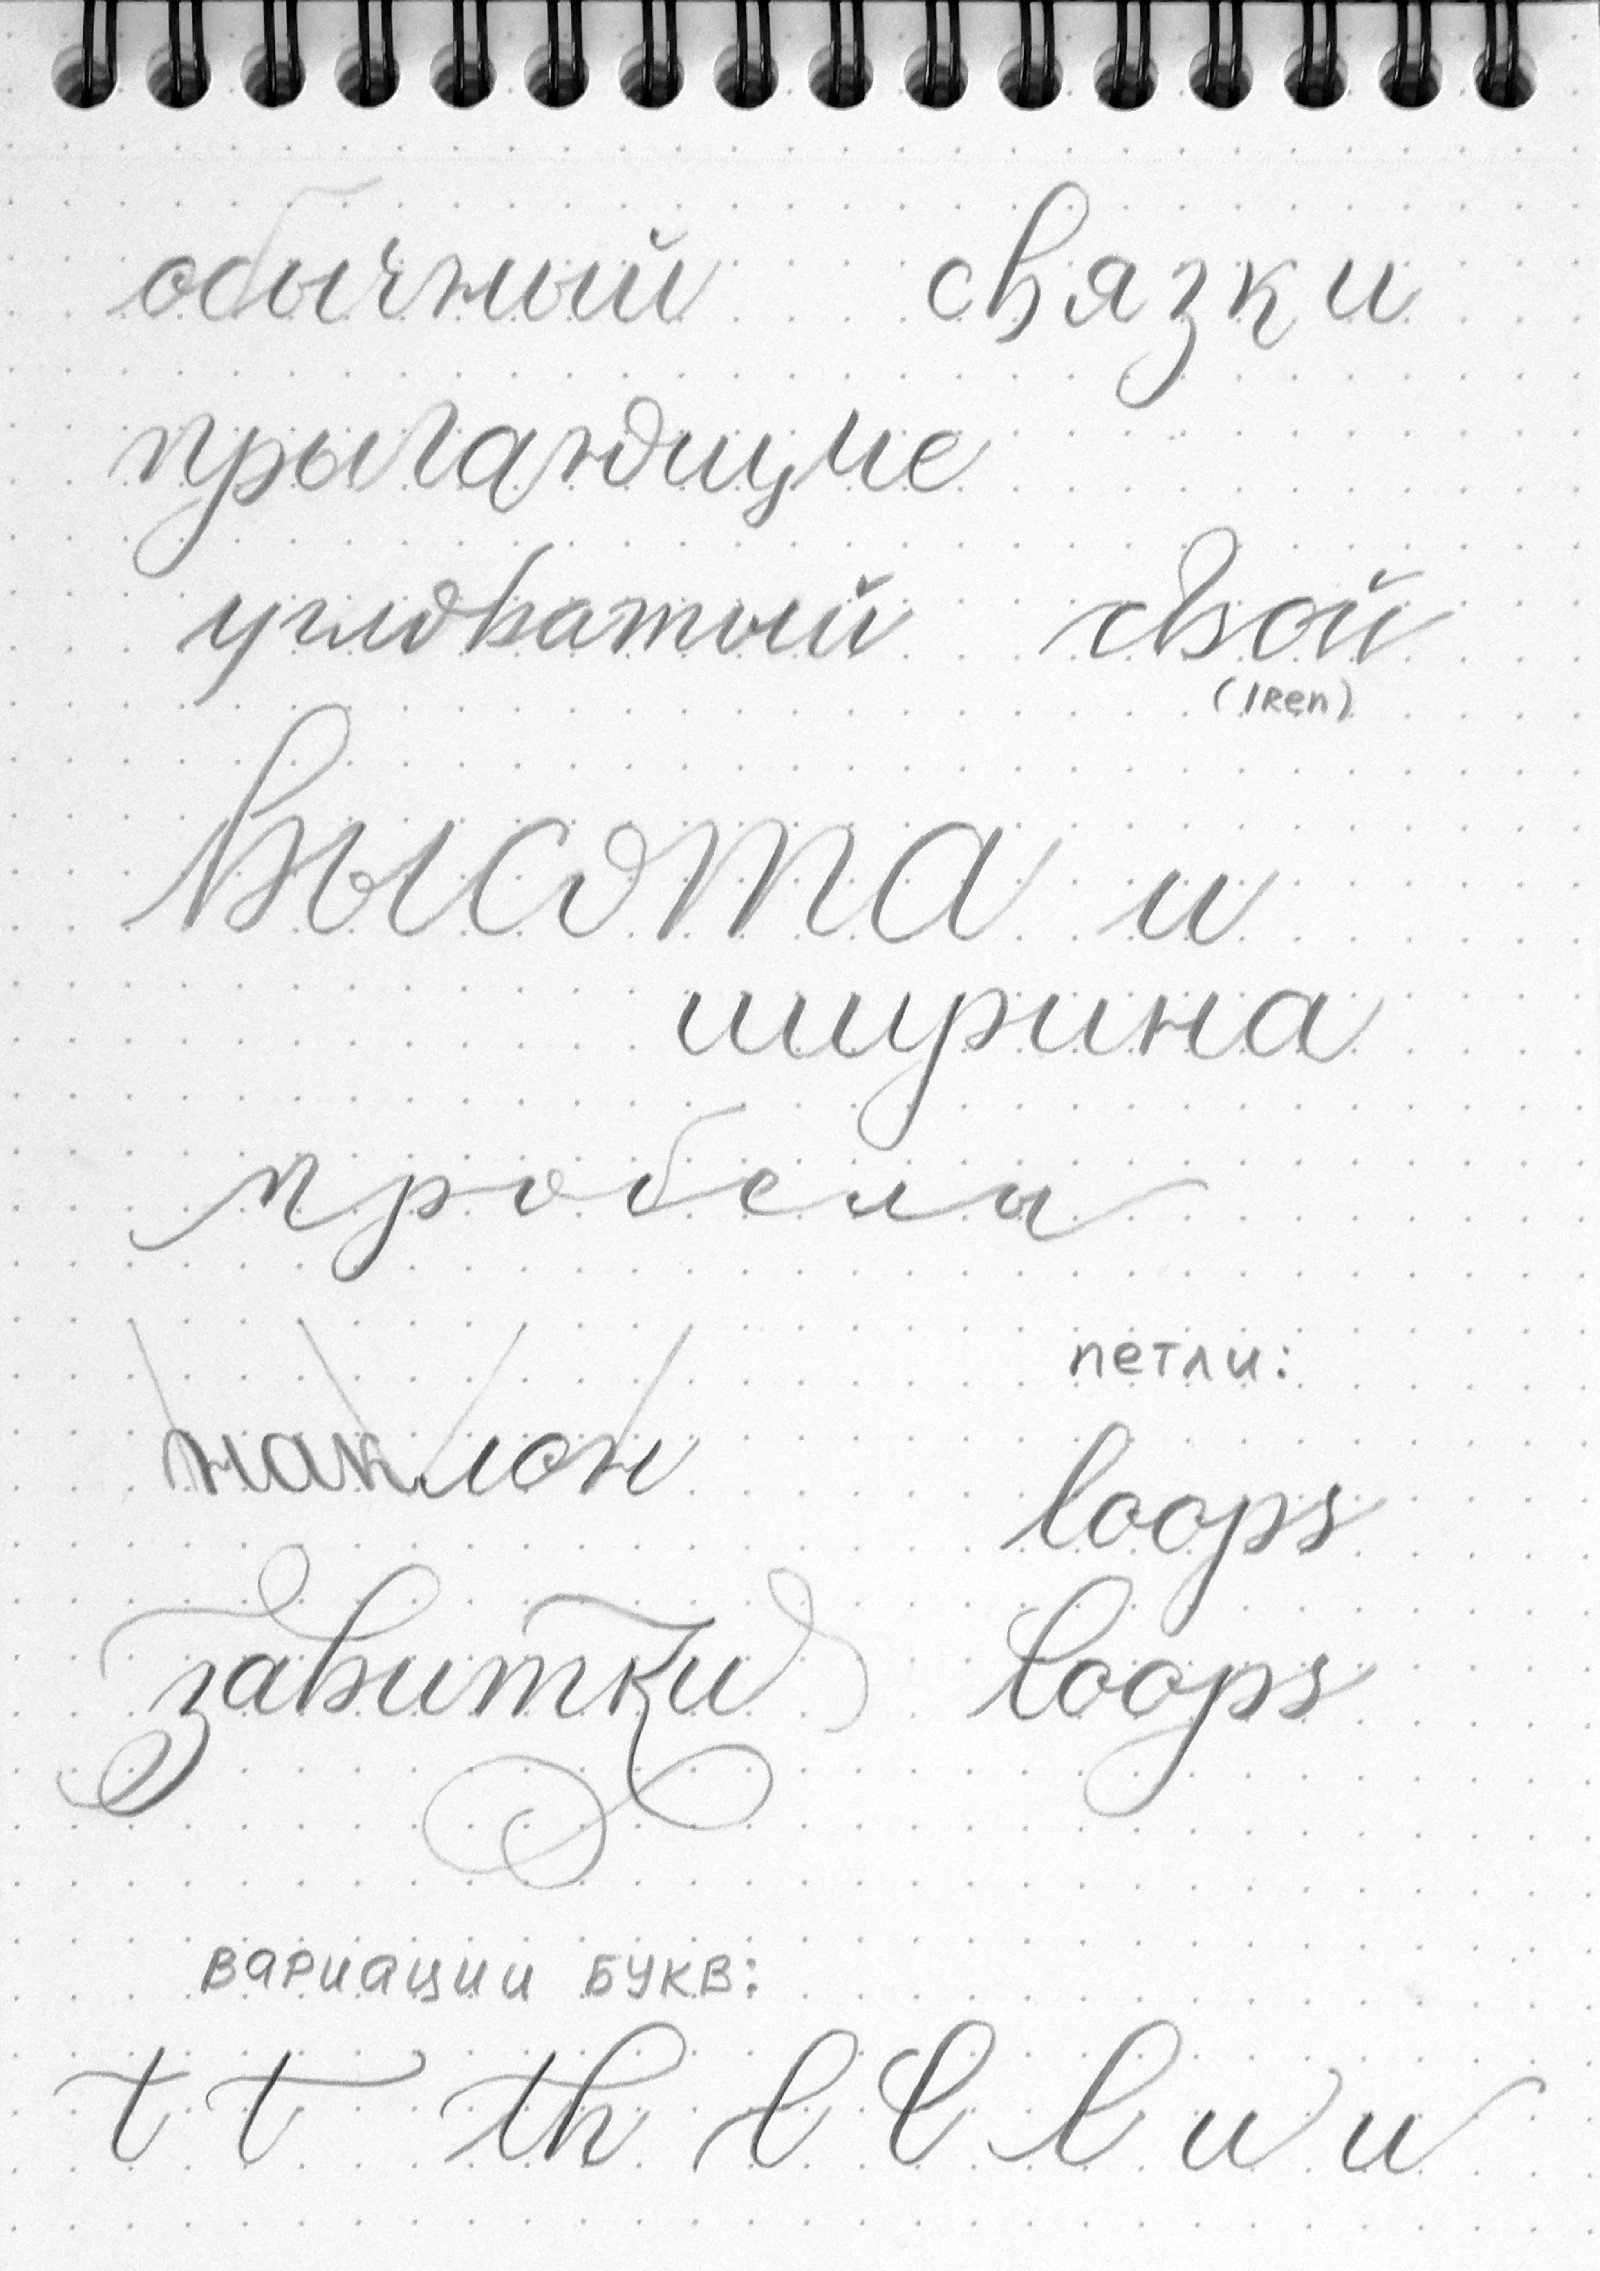 обычный связки
прыгающие
угловатый свой
(IRen)
высота и
ширина
пробелы
петли:
наклон
loops
завитки loops
вариации букв:
t t th l l l и и